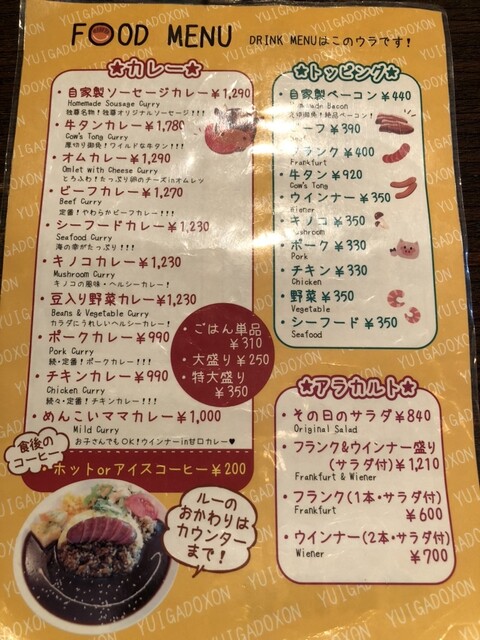 FOOD MENU
DRINK MENUはこのウラです!
★カレー★
・自家製ソーセージカレー¥1,290
Homemade Sausage Curry
独尊名物!独尊オリジナルソーセージ!!!
・牛タンカレー¥1,780
Cow's Tong Curry
厚切り御免!ワイルドな牛タン!!!
・オムカレー¥1,290
Omlet with Cheese Curry
とろふわ!たっぷり卵のチーズinオムレツ
・ビーフカレー¥1,270
Beef Curry
定番!やわらかビーフカレー!!!
・シーフードカレー¥1,230
Seafood Curry
海の幸がたっぷり!!!
・キノコカレー¥1,230
Mushroom Curry
キノコの風味・ヘルシーカレー!
・豆入り野菜カレー¥1,230
Beans & Vegetable Curry
カラダにうれしいヘルシーカレー!
・ポークカレー¥990
Pork Curry
続・定番!ポークカレー!!!
・チキンカレー¥990
Chicken Curry
続々・定番!チキンカレー!!!
・めんこいママカレー¥1,000
Mild Curry
お子さんでもOK!ウインナーin甘口カレー♥
・ごはん単品
¥310
・大盛り¥250
・特大盛り
¥350
食後の
コーヒー
・ホットorアイスコーヒー¥200
ルーの
おかわりは
カウンター
まで!
★トッピング★
・自家製ベーコン¥440
Bacon
ーフ¥390
フランク¥400
Frankfurt
・牛タン¥920
Cow's Tong
・ウインナー¥350
Wiener
・キノコ¥350
Mushroom
・ポーク¥330
Pork
・チキン¥330
Chicken
・野菜¥350
Vegetable
・シーフード¥350
Seafood
★アラカルト★
・その日のサラダ¥840
Original Salad
・フランク&ウインナー盛り
(サラダ付)¥1,210
Frankfurt & Wiener
・フランク(1本・サラダ付)
Frankfurt
¥600
・ウインナー(2本・サラダ付)
Wiener
¥700
YUIGADOXON